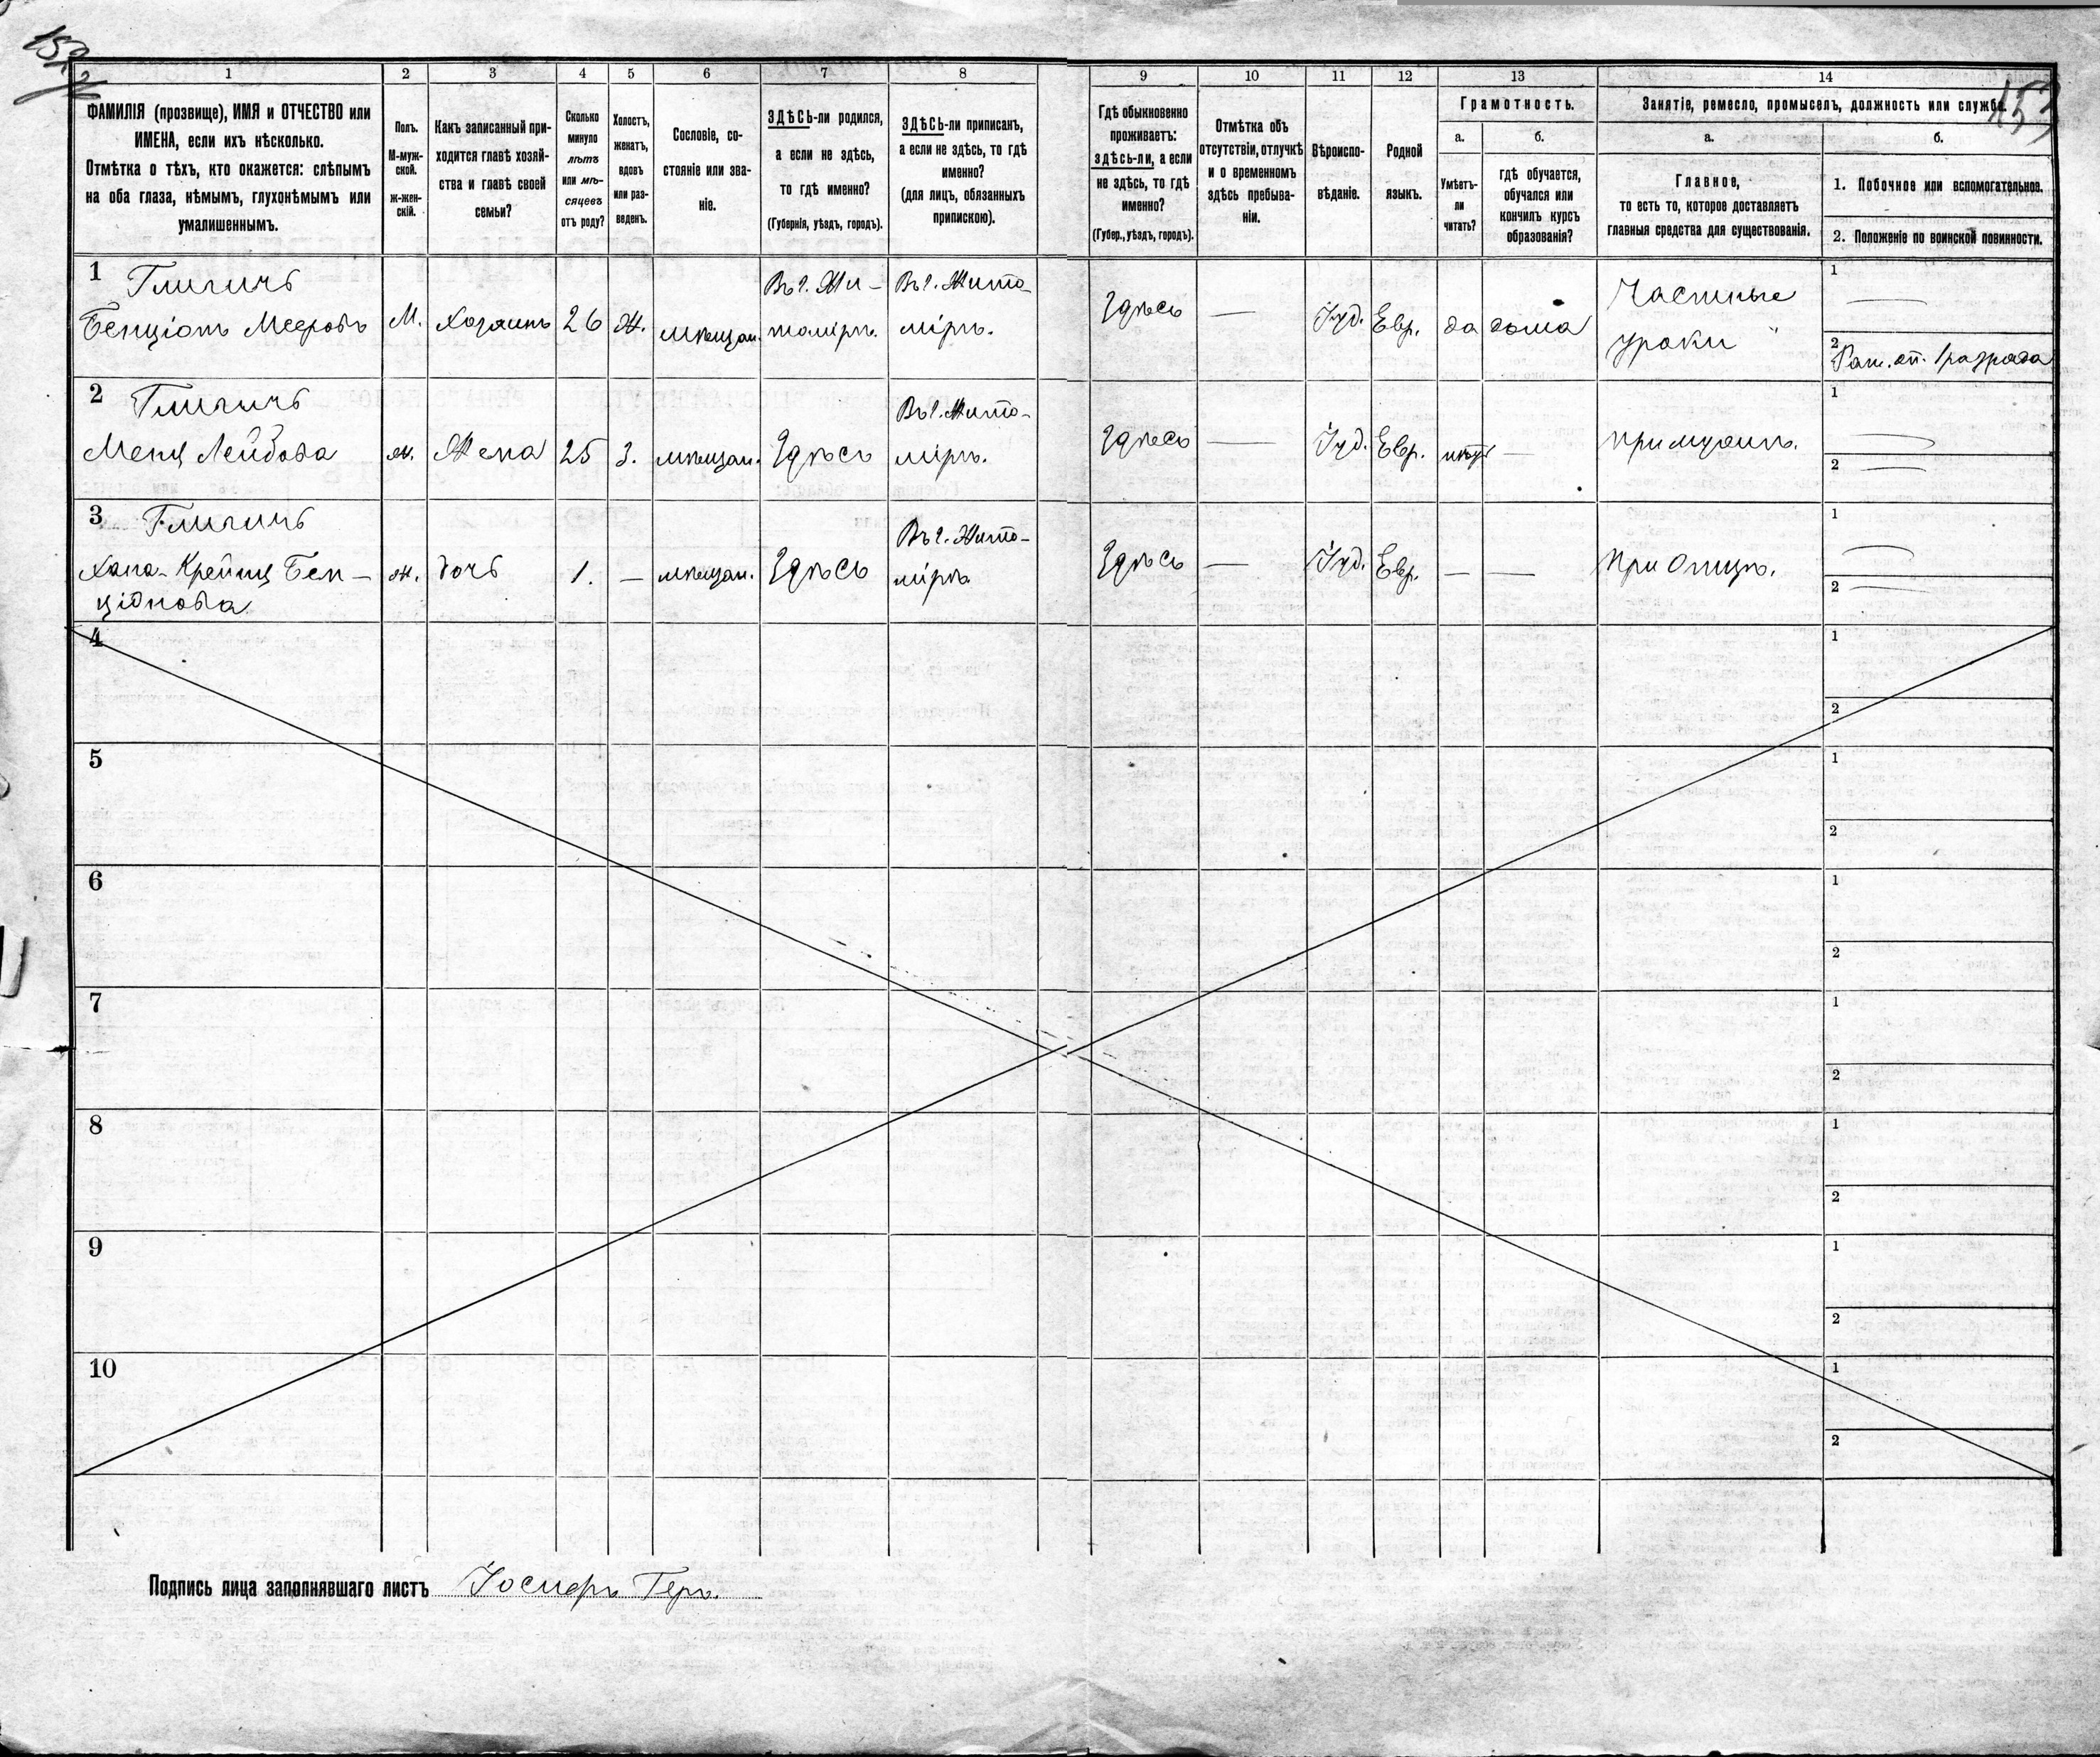 153
1 2 3 4 5 6 7 8 9 10 11 12 13 14
ФАМИЛІЯ (прозвище), ИМЯ и ОТЧЕСТВО или
ИМЕНА, если ихъ нѣсколько.
Отмѣтка о тѣхъ, кто окажется: слѣпымъ
на оба глаза, нѣмымъ, глухонѣмымъ или
умалишеннымъ.
Полъ.
М-муж-
ской.
ж-жен-
скій.
Какъ записанный при-
ходится главѣ хозяй-
ства и главѣ своей
семьи?
Сколько
минуло
лѣтъ
или мѣ-
сяцевъ
отъ роду?
Холостъ,
женатъ,
вдовъ
или раз-
веденъ.
Сословіе, со-
стояніе или зва-
ніе.
ЗДѢСЬ-ли родился,
а если не здѣсь,
то гдѣ именно?
(Губернія, уѣздъ, городъ).
ЗДѢСЬ-ли приписанъ,
а если не здѣсь, то гдѣ
именно?
(для лицъ, обязанныхъ
припискою).
Гдѣ обыкновенно
проживаетъ:
здѣсь-ли, а если
не здѣсь, то гдѣ
именно?
(Губер., уѣздъ, городъ).
Отмѣтка объ
отсутствіи, отлучкѣ
и о временномъ
здѣсь пребыва-
ніи.
Вѣроиспо-
вѣданіе.
Родной
языкъ.
Грамотность.
а.
Умѣетъ-
ли
читать?
б.
гдѣ обучается,
обучался или
кончилъ курсъ
образованія?
Занятіе, ремесло, промыселъ, должность или служба.
а.
Главное,
то есть то, которое доставляетъ
главныя средства для существованія.
б.
1. Побочное или вспомогательное.
2. Положеніе по воинской повинности.
1 Глигичъ
Бенціонъ Мееровъ
М.
Хозяинъ
26
Ж.
мѣщан.
Въ г. Жи-
томірѣ.
Въ г. Жито-
мірѣ.
Здѣсь
—
Іуд.
Евр.
да
дома
Частные
уроки
1 —
2 Рат. оп. 1 разряда
2 Глигичъ
Менц Лейбова
ж.
Жена
25
З.
мѣщан.
Здѣсь
Въ г. Жито-
мірѣ.
Здѣсь
—
Іуд.
Евр.
нѣтъ
—
при мужѣ.
1 —
2 —
3 Глигичъ
Хана-Крейнц Бен-
ціонова
ж.
дочь
1.
—
мѣщан.
Здѣсь
Въ г. Жито-
мірѣ
Здѣсь
—
Іуд.
Евр.
—
—
при Отцѣ.
1 —
2 —
4
1
2
5
1
2
6
1
2
7
1
2
8
1
2
9
1
2
10
1
2
Подпись лица заполнявшаго листъ Іосифъ Геръ.